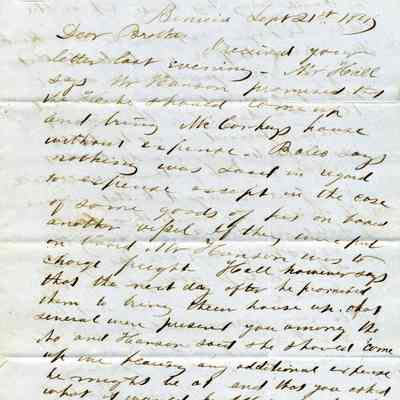 Benicia Sept 21st 1849
Dear Brother
I received your
letter last evening - Mr Hall
says Mr Hanson promised that
the should come up
and bring McConkeys house
without expense. Bales says
nothing was said in regard
to expense except in the case
of some goods of his on board
another vessel. If they were put
on board Mr Hanson was to
charge freight Hall however says
that the next day after he promised
them to bring their house up. that
several were present you among the
No and Hanson said she should come
up me paying any additional expense
he might be at and that you asked
what